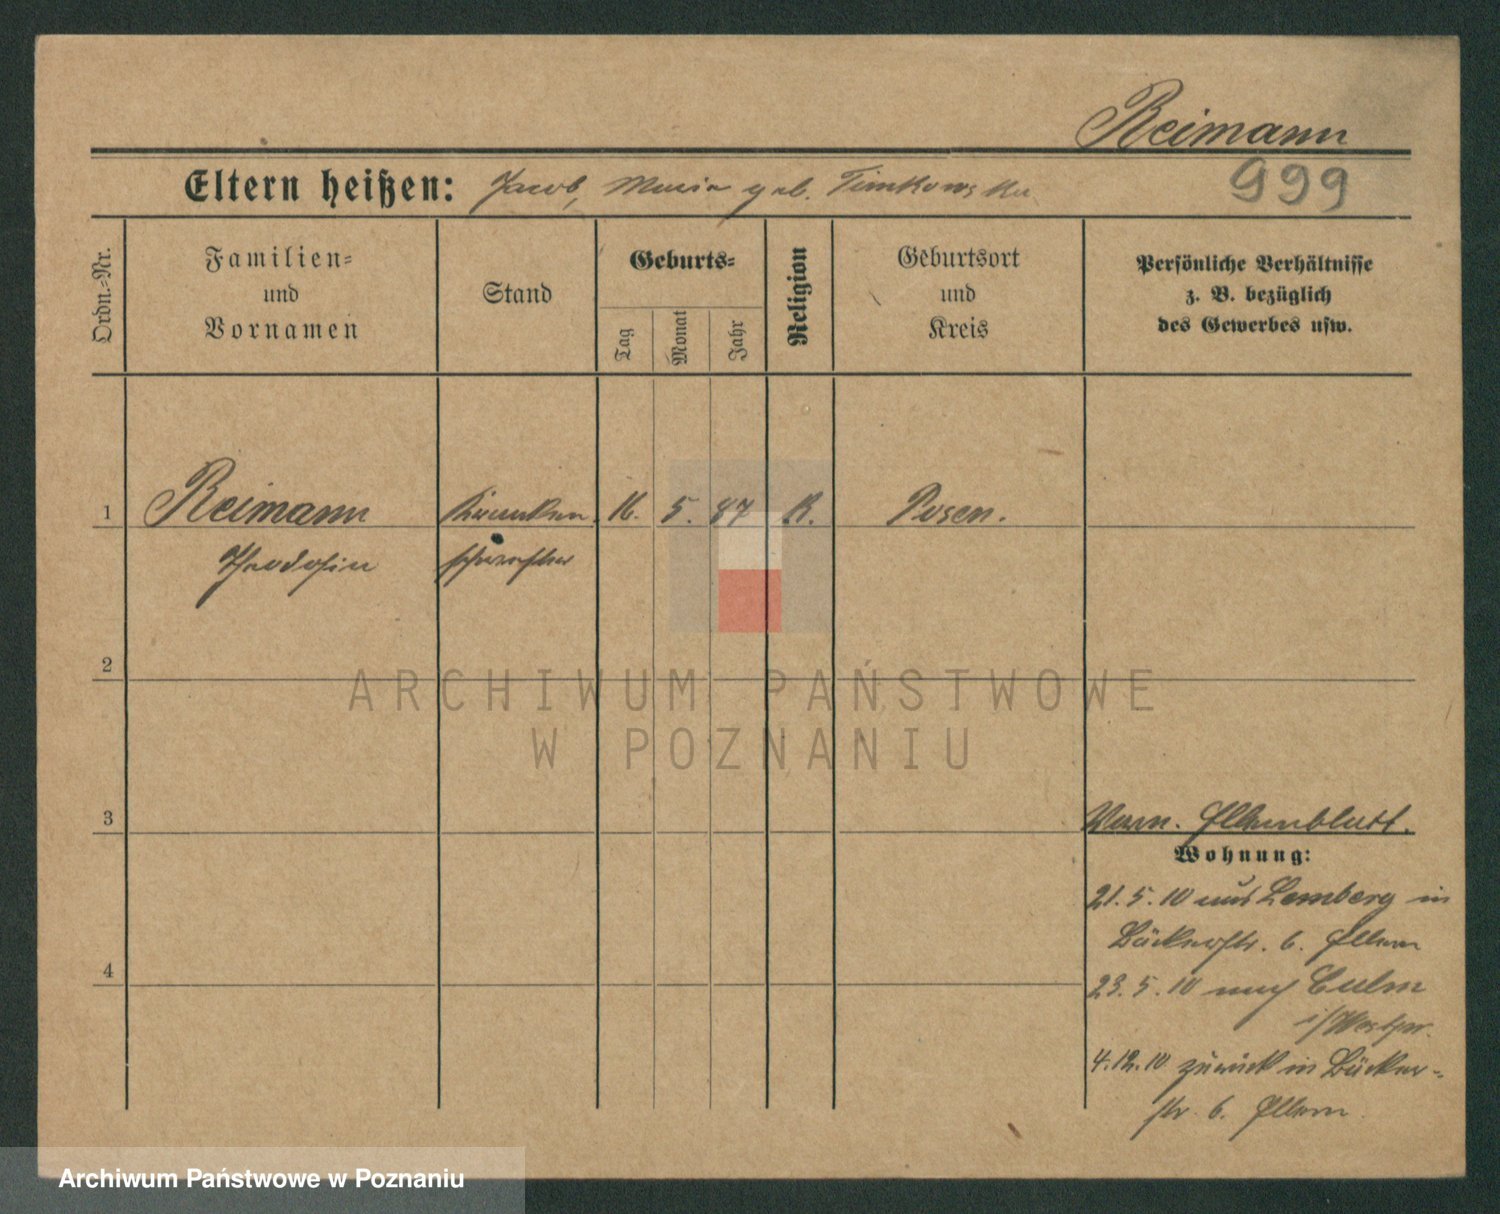 Reimann
Eltern heißen: Jacob, Maria geb. Timkowska
999
Ordn.=Nr.
Familien=
und
Vornamen
Stand
Geburts=
Tag
Monat
Jahr
Religion
Geburtsort
und
Kreis
Persönliche Verhältnisse
z. B. bezüglich
des Gewerbes usw.
1 Reimann Kranken 16. 5. 87 K. Posen.
Theodosia schwester
2
ARCHIWUM PAŃSTWOWE
W POZNANIU
3
Vorn. Elternblatt.
Wohnung:
21.5.10 aus Lemberg in
Bäckerstr. 6. Eltern
4
23.5.10 nach Culm
i/Westpr.
4.12.10 zurück in Bäcker=
str 6. Eltern
Archiwum Państwowe w Poznaniu